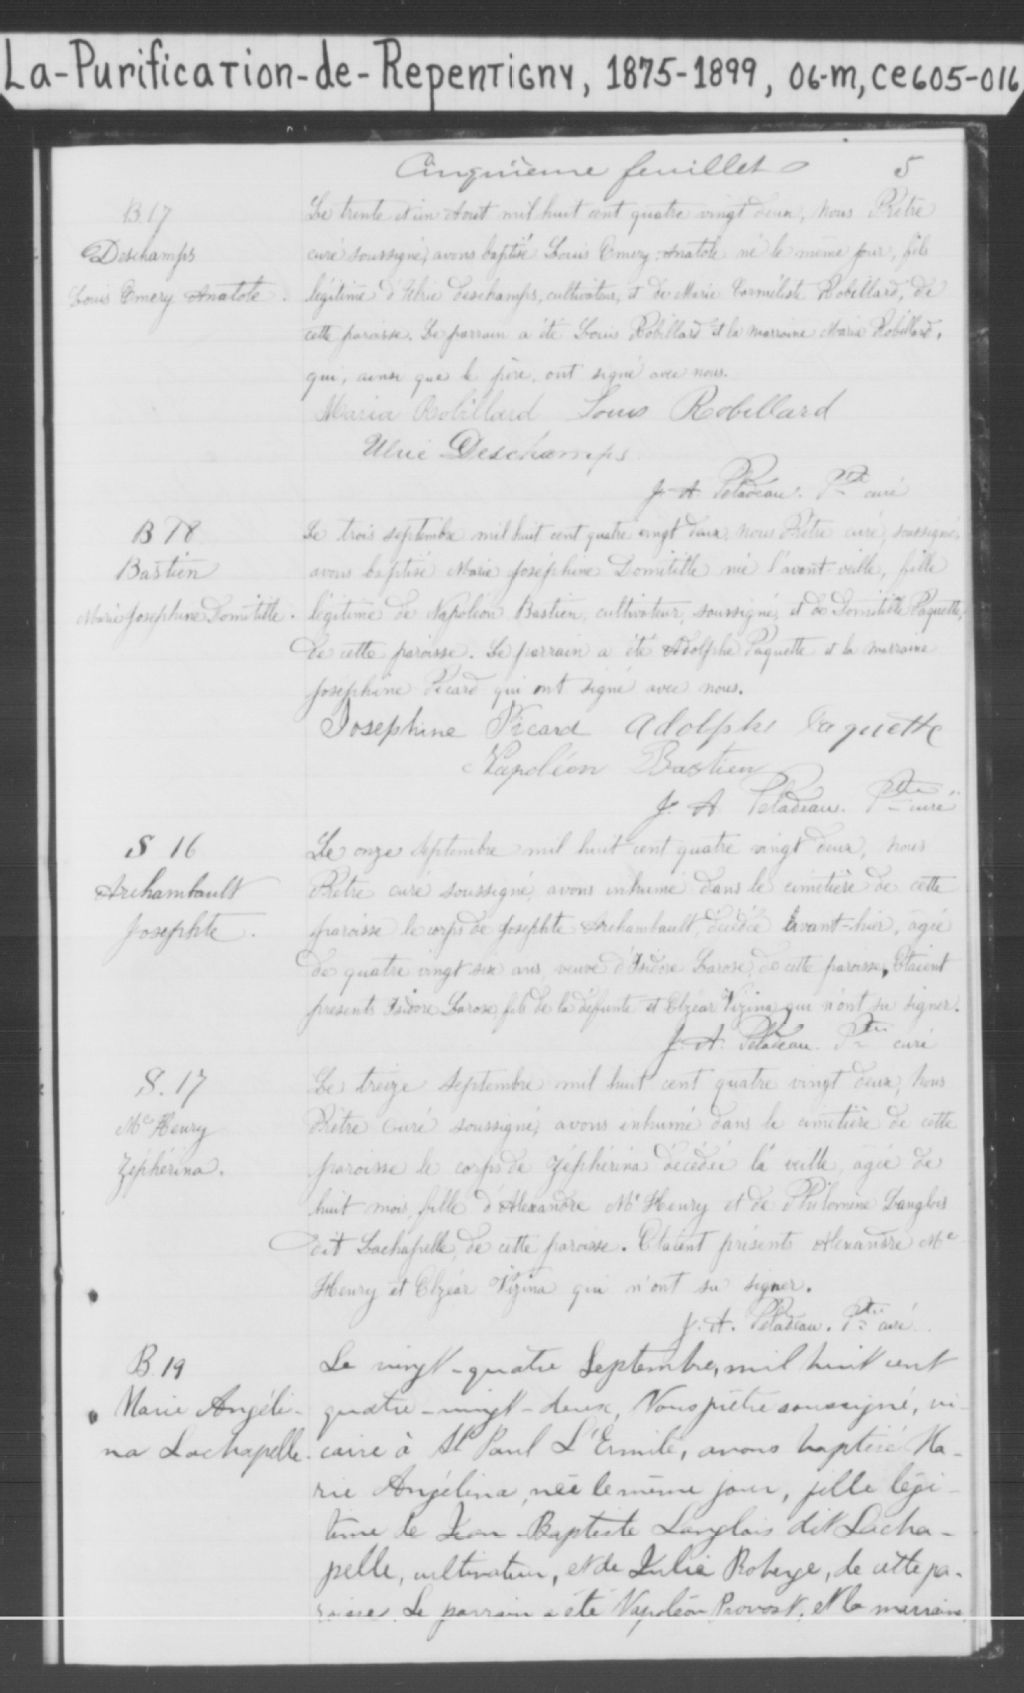 La-Purification-de-Repentigny, 1875-1899, 06-m, ce605-016
Cinquième feuillet 5
B.17
Deschamps
Louis Emery Anatole.
Le trente et un Aout mil huit cent quatre vingt deux, Nous Prêtre
curé soussigné, avons baptisé Louis Emery Anatole né le même jour, fils
légitime d'Ulric Deschamps, cultivateur, et de Marie Robillard, de
cette paroisse. Le parrain a été Louis Robillard et la marraine Maria Robillard,
qui, ainsi que le père, ont signé avec nous.
Maria Robillard Louis Robillard
Ulric Deschamps
J. A. Peladeau. Ptre curé
B 18
Bastien
Marie Josephine Domitille.
Le trois septembre mil huit cent quatre vingt deux, nous Prêtre curé, soussigné,
avons baptisé Marie Joséphine Domitille née l'avant-veille, fille
légitime de Napoléon Bastien, cultivateur, soussigné, et de Domitille Paquette,
de cette paroisse. Le parrain a été Adolphe Paquette et la marraine
Joséphine Picard qui ont signé avec nous.
Josephine Picard Adolphe Paquette
Napoléon Bastien
J. A. Peladeau. Ptre curé
S 16
Archambault
Josephte.
Le onze Septembre mil huit cent quatre vingt deux, nous
Prêtre curé soussigné, avons inhumé dans le cimetière de cette
paroisse le corps de Josephte Archambault, décédée avant-hier, agée
de quatre vingt six ans, veuve d'Isidore Larose, de cette paroisse. Etaient
présents Isidore Larose fils de la défunte et Elzéar Vizina qui n'ont su signer.
J. A. Peladeau. Ptre curé
S. 17
Mc Henry
Zéphérina.
Le treize Septembre mil huit cent quatre vingt deux, Nous
Prêtre Curé soussigné, avons inhumé dans le cimetière de cette
paroisse le corps de Zéphérina décédée la veille, agée de
huit mois, fille d'Alexandre Mc Henry et de Philomène Langlois
dit Lachapelle, de cette paroisse. Etaient présent Alexandre Mc
Henry et Elzéar Vizina qui n'ont su signer.
J. A. Peladeau. Ptre curé.
B.19
Marie Angéli-
na Lachapelle.
Le vingt-quatre Septembre, mil huit cent
quatre-vingt-deux, Nous prêtre soussigné, vi-
caire à St Paul L'Ermite, avons baptisé Ma-
rie Angélina, née le même jour, fille légi-
time de Jean-Baptiste Langlois dit Lacha-
pelle, cultivateur, et de Julie Roberge, de cette pa-
roisse. Le parrain a été Napoléon Provost, et la marraine